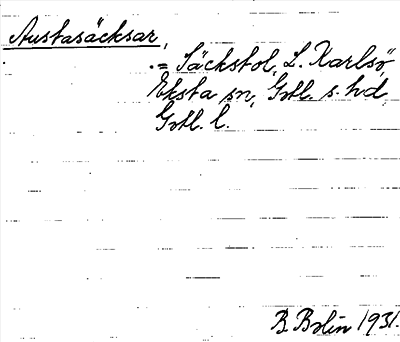 Austasäcksar,
= Säckstol, L. Karlsö,
Eksta sn, Gotl. s. hd,
Gotl. l.
B. Bolin 1931.